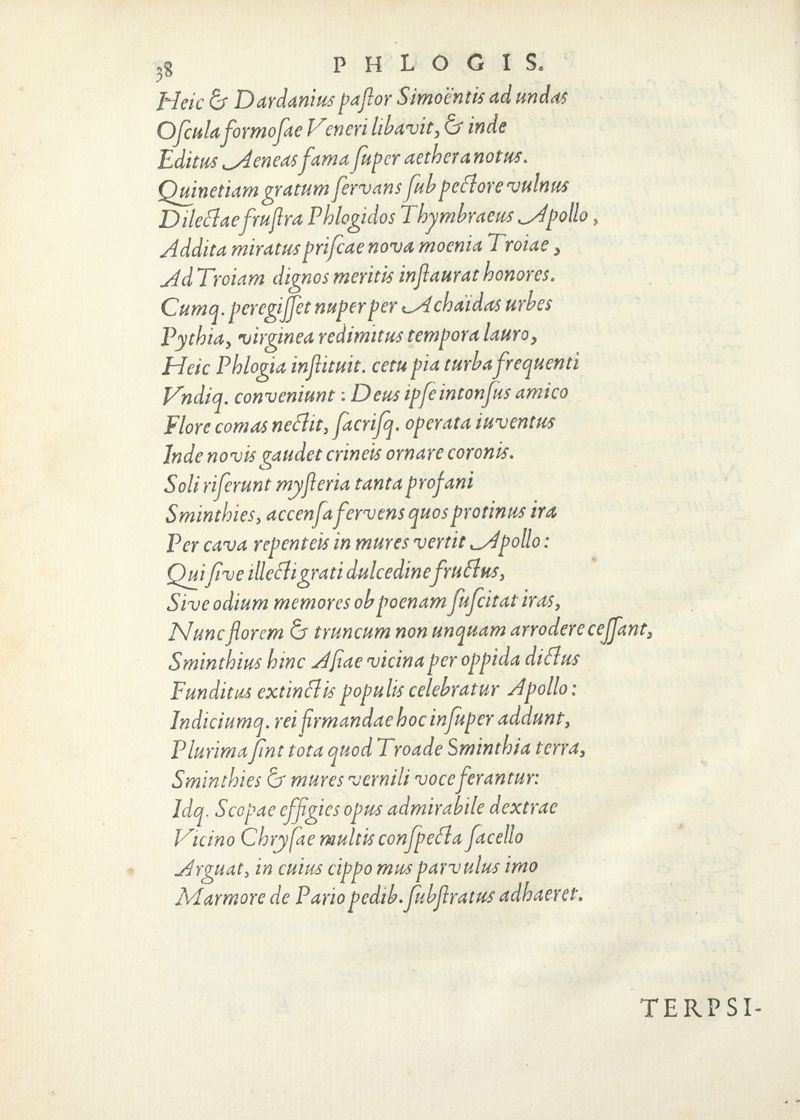 38 PHLOGIS.
Heic & Dardanius paſtor Simoëntis ad undas
Oſcula formoſae Veneri libavit, & inde
Editus Aeneas fama ſuper aethera notus.
Quinetiam gratum ſervans ſub pectore vulnus
Dilectae fruſtra Phlogidos Thymbraeus Apollo,
Addita miratus priſcae nova moenia Troiae,
Ad Troiam dignos meritis inſtaurat honores.
Cumq. peregiſſet nuper per Achaïdas urbes
Pythia, virginea redimitus tempora lauro,
Heic Phlogia inſtituit. cetu pia turba frequenti
Vndiq. conveniunt: Deus ipſe intonſus amico
Flore comas nectit, ſacriſq. operata iuventus
Inde novis gaudet crineis ornare coronis.
Soli riſerunt myſteria tanta profani
Sminthies, accenſa fervens quos protinus ira
Per cava repenteis in mures vertit Apollo:
Qui ſive illecti grati dulcedine fructus,
Sive odium memores ob poenam ſuſcitat iras,
Nunc florem & truncum non unquam arrodere ceſſant,
Sminthius hinc Aſiae vicina per oppida dictus
Funditus extinctis populis celebratur Apollo:
Indiciumq. rei firmandae hoc inſuper addunt,
Plurima ſint tota quod Troade Sminthia terra,
Sminthies & mures vernili voce ferantur:
Idq. Scopae effigies opus admirabile dextrae
Vicino Chryſae multis conſpecta ſacello
Arguat, in cuius cippo mus parvulus imo
Marmore de Pario pedib. ſubſtratus adhaeret.
TERPSI-